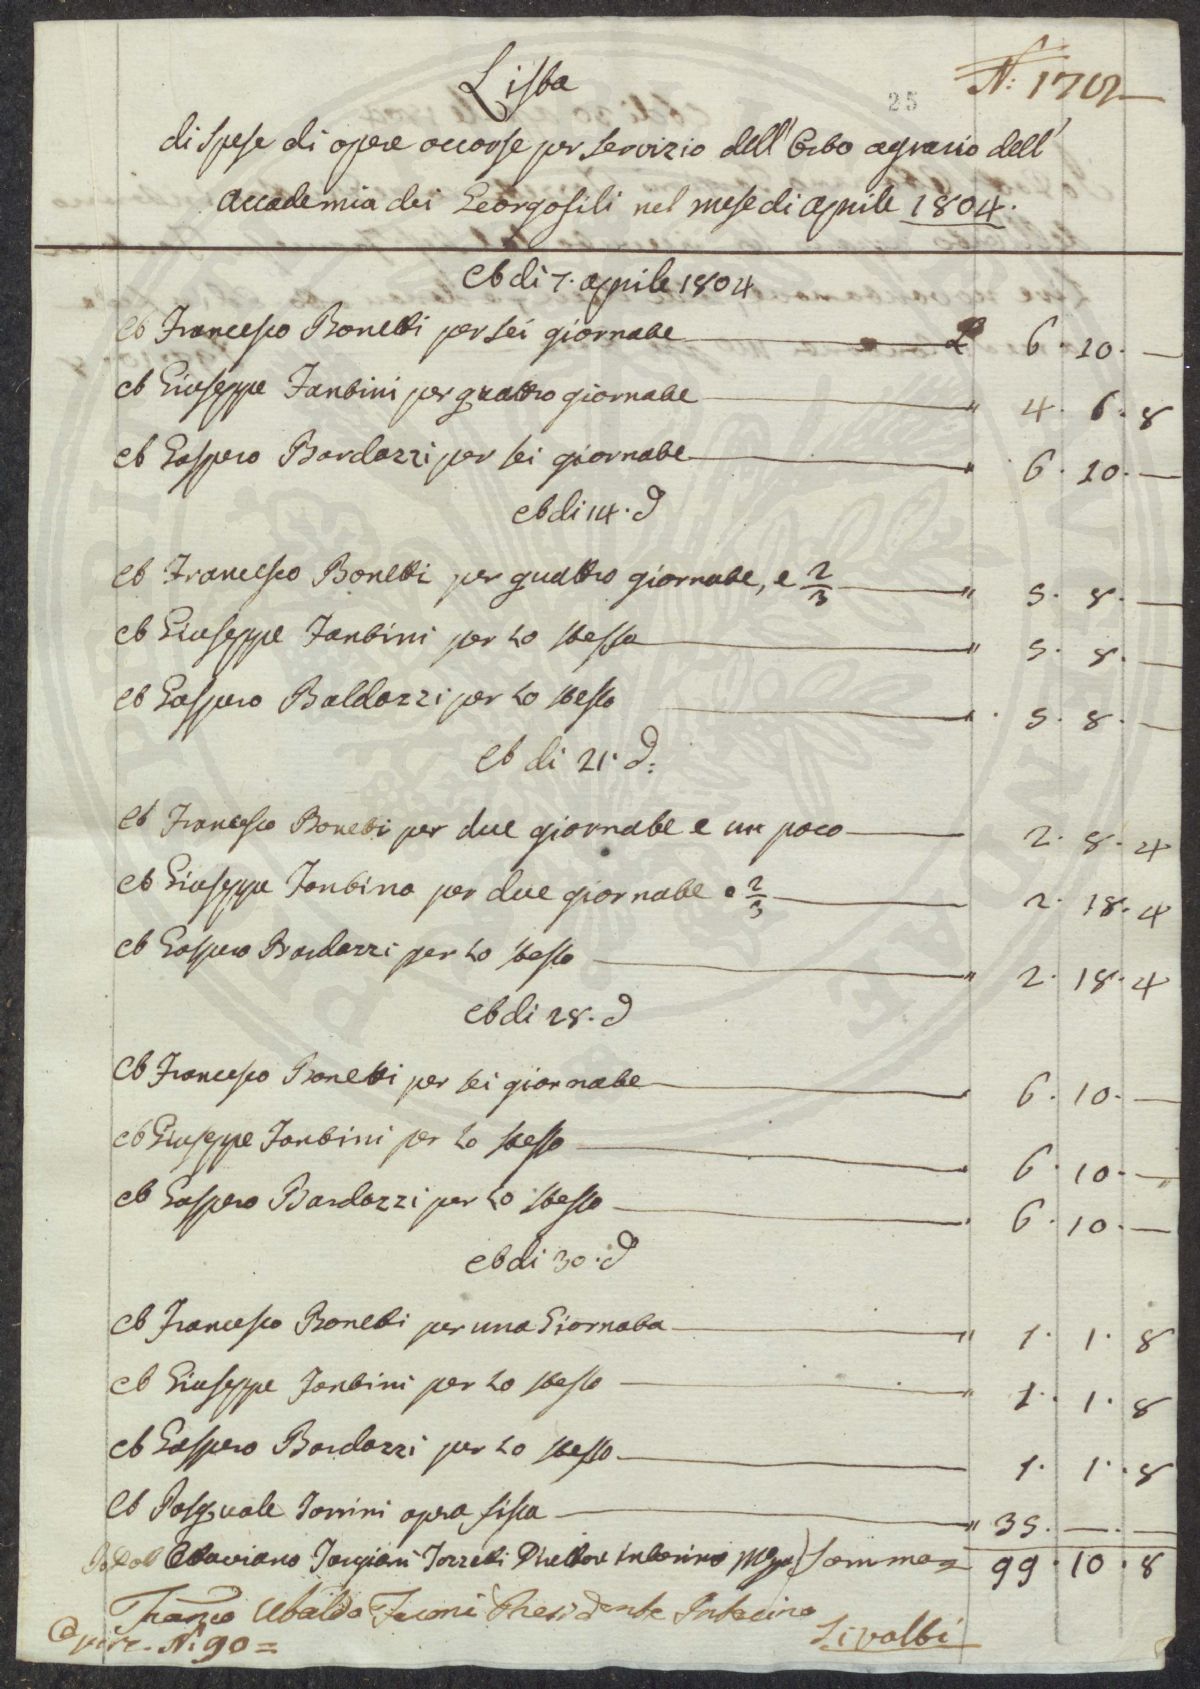 Lista
N: 1702
25
di spese di opere occorse per servizio dell' Orto agrario dell'
Accademia dei Georgofili nel mese di aprile 1804.
A di 7. aprile 1804
A Francesco Bonetti per sei giornate £ 6. 10. —
A Giuseppe Tantini per quattro giornate " 4. 6. 8
A Gaspero Bardazzi per sei giornate " 6. 10. —
A di 14. d
A Francesco Bonetti per quattro giornate, e 2/3 " 5. 8. —
A Giuseppe Tantini per lo stesso " 5. 8. —
A Gaspero Baldazzi per lo stesso " 5. 8. —
A di 21. d:
A Francesco Bonetti per due giornate e un poco 2. 8. 4
A Giuseppe Tantino per due giornate e 2/3 2. 18. 4
A Gaspero Bardazzi per lo stesso " 2. 18. 4
A di 28. d
A Francesco Bonetti per sei giornate 6. 10. —
A Giuseppe Tantini per lo stesso 6. 10. —
A Gaspero Bardazzi per lo stesso 6. 10. —
A di 30. d
A Francesco Bonetti per una Giornata " 1. 1. 8
A Giuseppe Tantini per lo stesso " 1. 1. 8
A Gaspero Bardazzi per lo stesso 1. 1. 8
A Pasquale Torrini opera fissa " 35. — . —
Ottaviano Targioni Tozzetti Direttore Interino Somma = 99. 10. 8
Ubaldo Feroni Presidente Interino
N: 90 = Rivalti